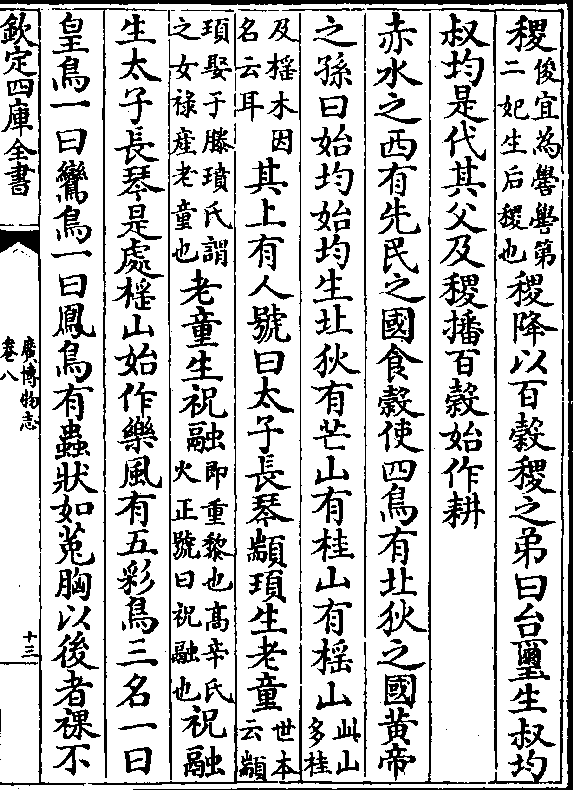 稷俊宜為嚳嚳第二妃生后稷也稷降以百榖稷之弟曰台璽生叔均
叔均是代其父及稷播百榖始作耕
赤水之西有先民之國食榖使四鳥有北狄之國黃帝
之孫曰始均始均生北狄有芒山有桂山有榣山此山多桂
及榣木因名云耳其上有人號曰太子長琴顓頊生老童世本云顓
頊娶于滕墳氏謂之女祿産老童也老童生祝融即重黎也高辛氏火正號曰祝融也祝融
生太子長琴是處榣山始作樂風有五彩鳥三名一曰
皇鳥一曰鸞鳥一曰鳳鳥有蟲狀如菟胸以後者裸不
欽定四庫全書
廣博物志
卷八
十三